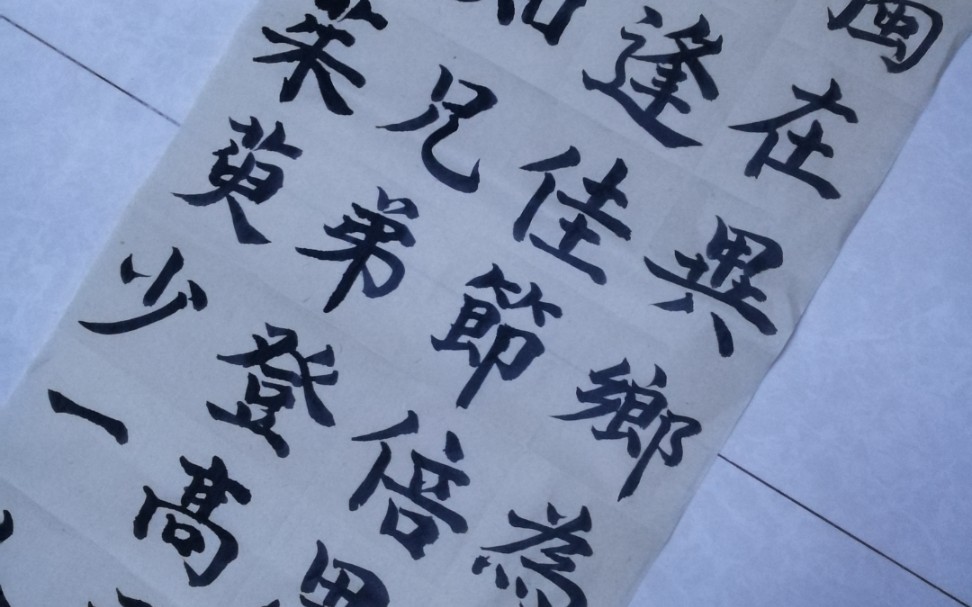 在異鄉為
逢佳節倍思
知兄弟登高
茱萸少一